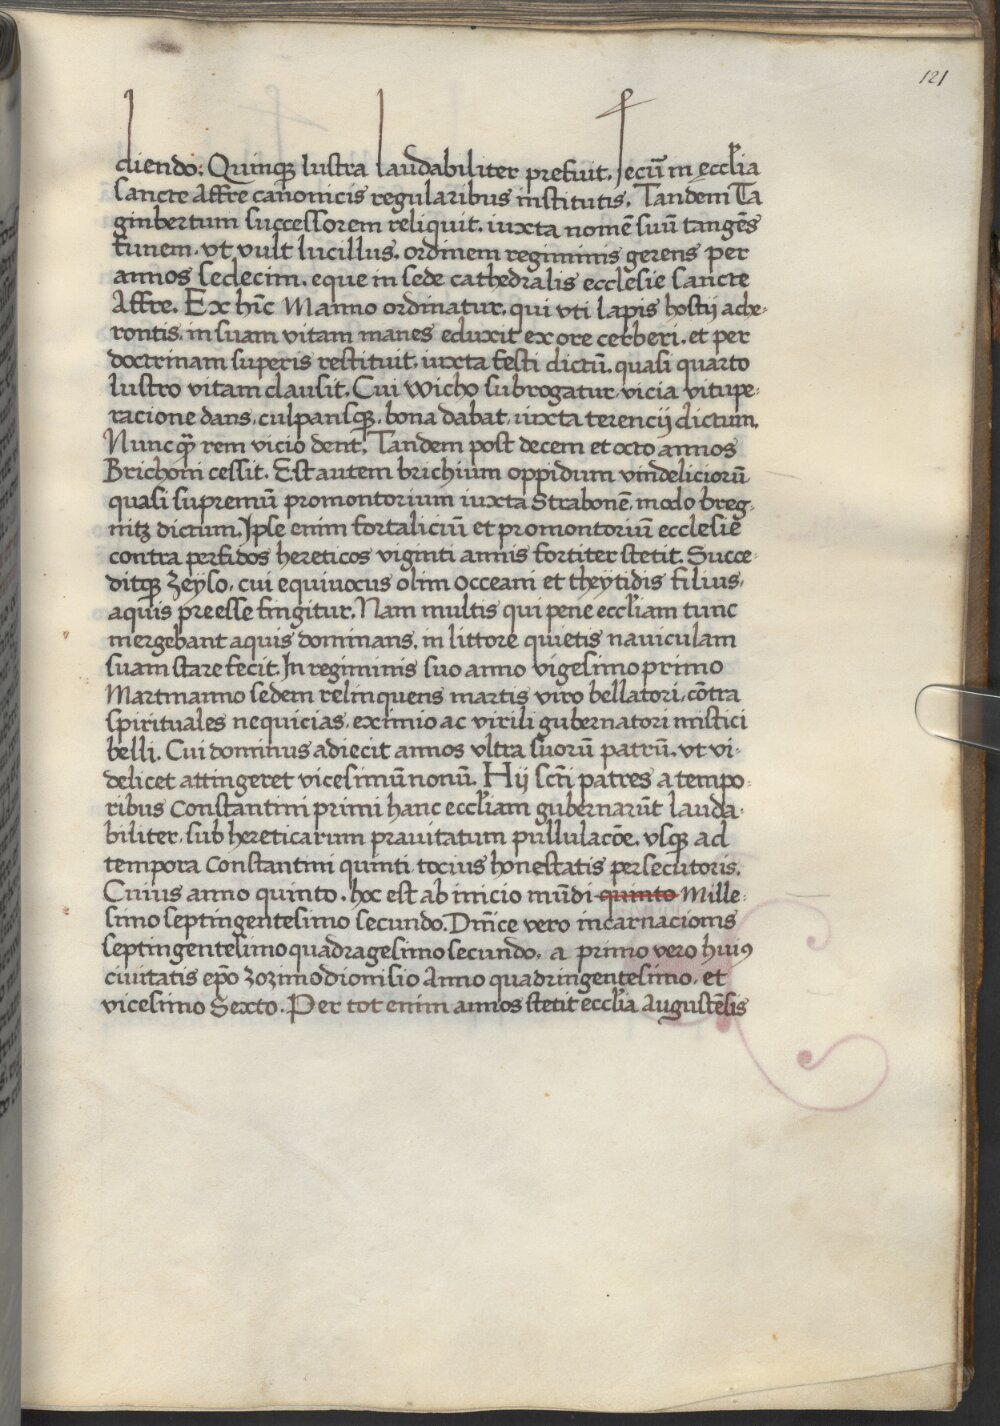 121
diendo: Quinqȝ lustra laudabiliter prefuit. secū in eccl̄ia
sancte Affre canonicis regularibus institutis. Tandem Ta
ginbertum successorem reliquit. iuxta nomē suū tangēs
funem. vt vult lucillus. ordinem regiminis gerens per
annos sedecim. eque in sede cathedralis ecclesie sancte
Affre. Ex hīc Manno ordinatur. qui vti lapis hostij ache-
rontis. in suam vitam manes eduxit ex ore cerberi. et per
doctrinam superis restituit. iuxta festi dictū. quasi quarto
lustro vitam clausit. Cui wicho subrogatur. vicia vitupe-
racione dans. culpansqȝ. bona dabat. iuxta terencij dictum.
Nuncqȝ rem vicio dent. Tandem post decem et octo annos
Brichoni cessit. Est autem brichium oppidum vindeliciorū
quasi supremū promontorium iuxta Strabonē. modo breg-
nitz dictum. Ipse enim fortaliciū et promontoriū ecclesie
contra perfidos hereticos viginti annis fortiter stetit. Succe-
ditqȝ Zeyso. cui equiuocus olim occeani et theytidis filius.
aquis preesse fingitur. Nam multis qui pene eccl̄iam tunc
mergebant aquis dominans. in littore quietis nauiculam
suam stare fecit. In regiminis suo anno vigesimo primo
Martmanno sedem relinquens martis viro bellatori. cōtra
spirituales nequicias. eximio ac virili gubernatori mistici
belli. Cui dominus adiecit annos vltra suorū patrū. vt vi-
delicet attingeret vicesimū nonū. Hij scti patres a tempo-
ribus Constantini primi hanc eccl̄iam gubernarūt lauda-
biliter. sub hereticarum prauitatum pullulacōe. vsqȝ ad
tempora Constantini quinti. tocius honestatis persecutoris.
Cuius anno quinto. hoc est ab inicio mūdi quinto Mille-
simo septingentesimo secundo. Dn̄ice vero incarnacionis
septingentesimo quadragesimo secundo. a primo vero huiꝯ
ciuitatis ep̄o zozimo dionisio Anno quadringentesimo. et
vicesimo Sexto. Per tot enim annos stetit eccl̄ia augustēsis